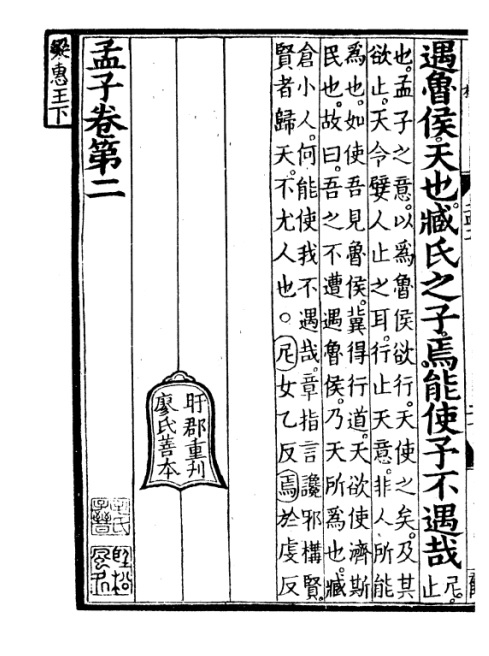 遇魯侯。天也。臧氏之子。焉能使予不遇哉尼。止
也。孟子之意。以爲魯侯欲行。天使之矣。及其
欲止。天令嬖人止之耳。行止天意。非人所能
爲也。如使吾見魯侯。冀得行道。天欲使濟斯
民也。故曰。吾之不遭遇魯侯。乃天所爲也。臧
倉小人。何能使我不遇哉。章指言讒邪構賢。
賢者歸天。不尤人也。○尼女乙反焉於虔反
旴郡重刊
廖氏善本
孟子卷第二
梁惠王下